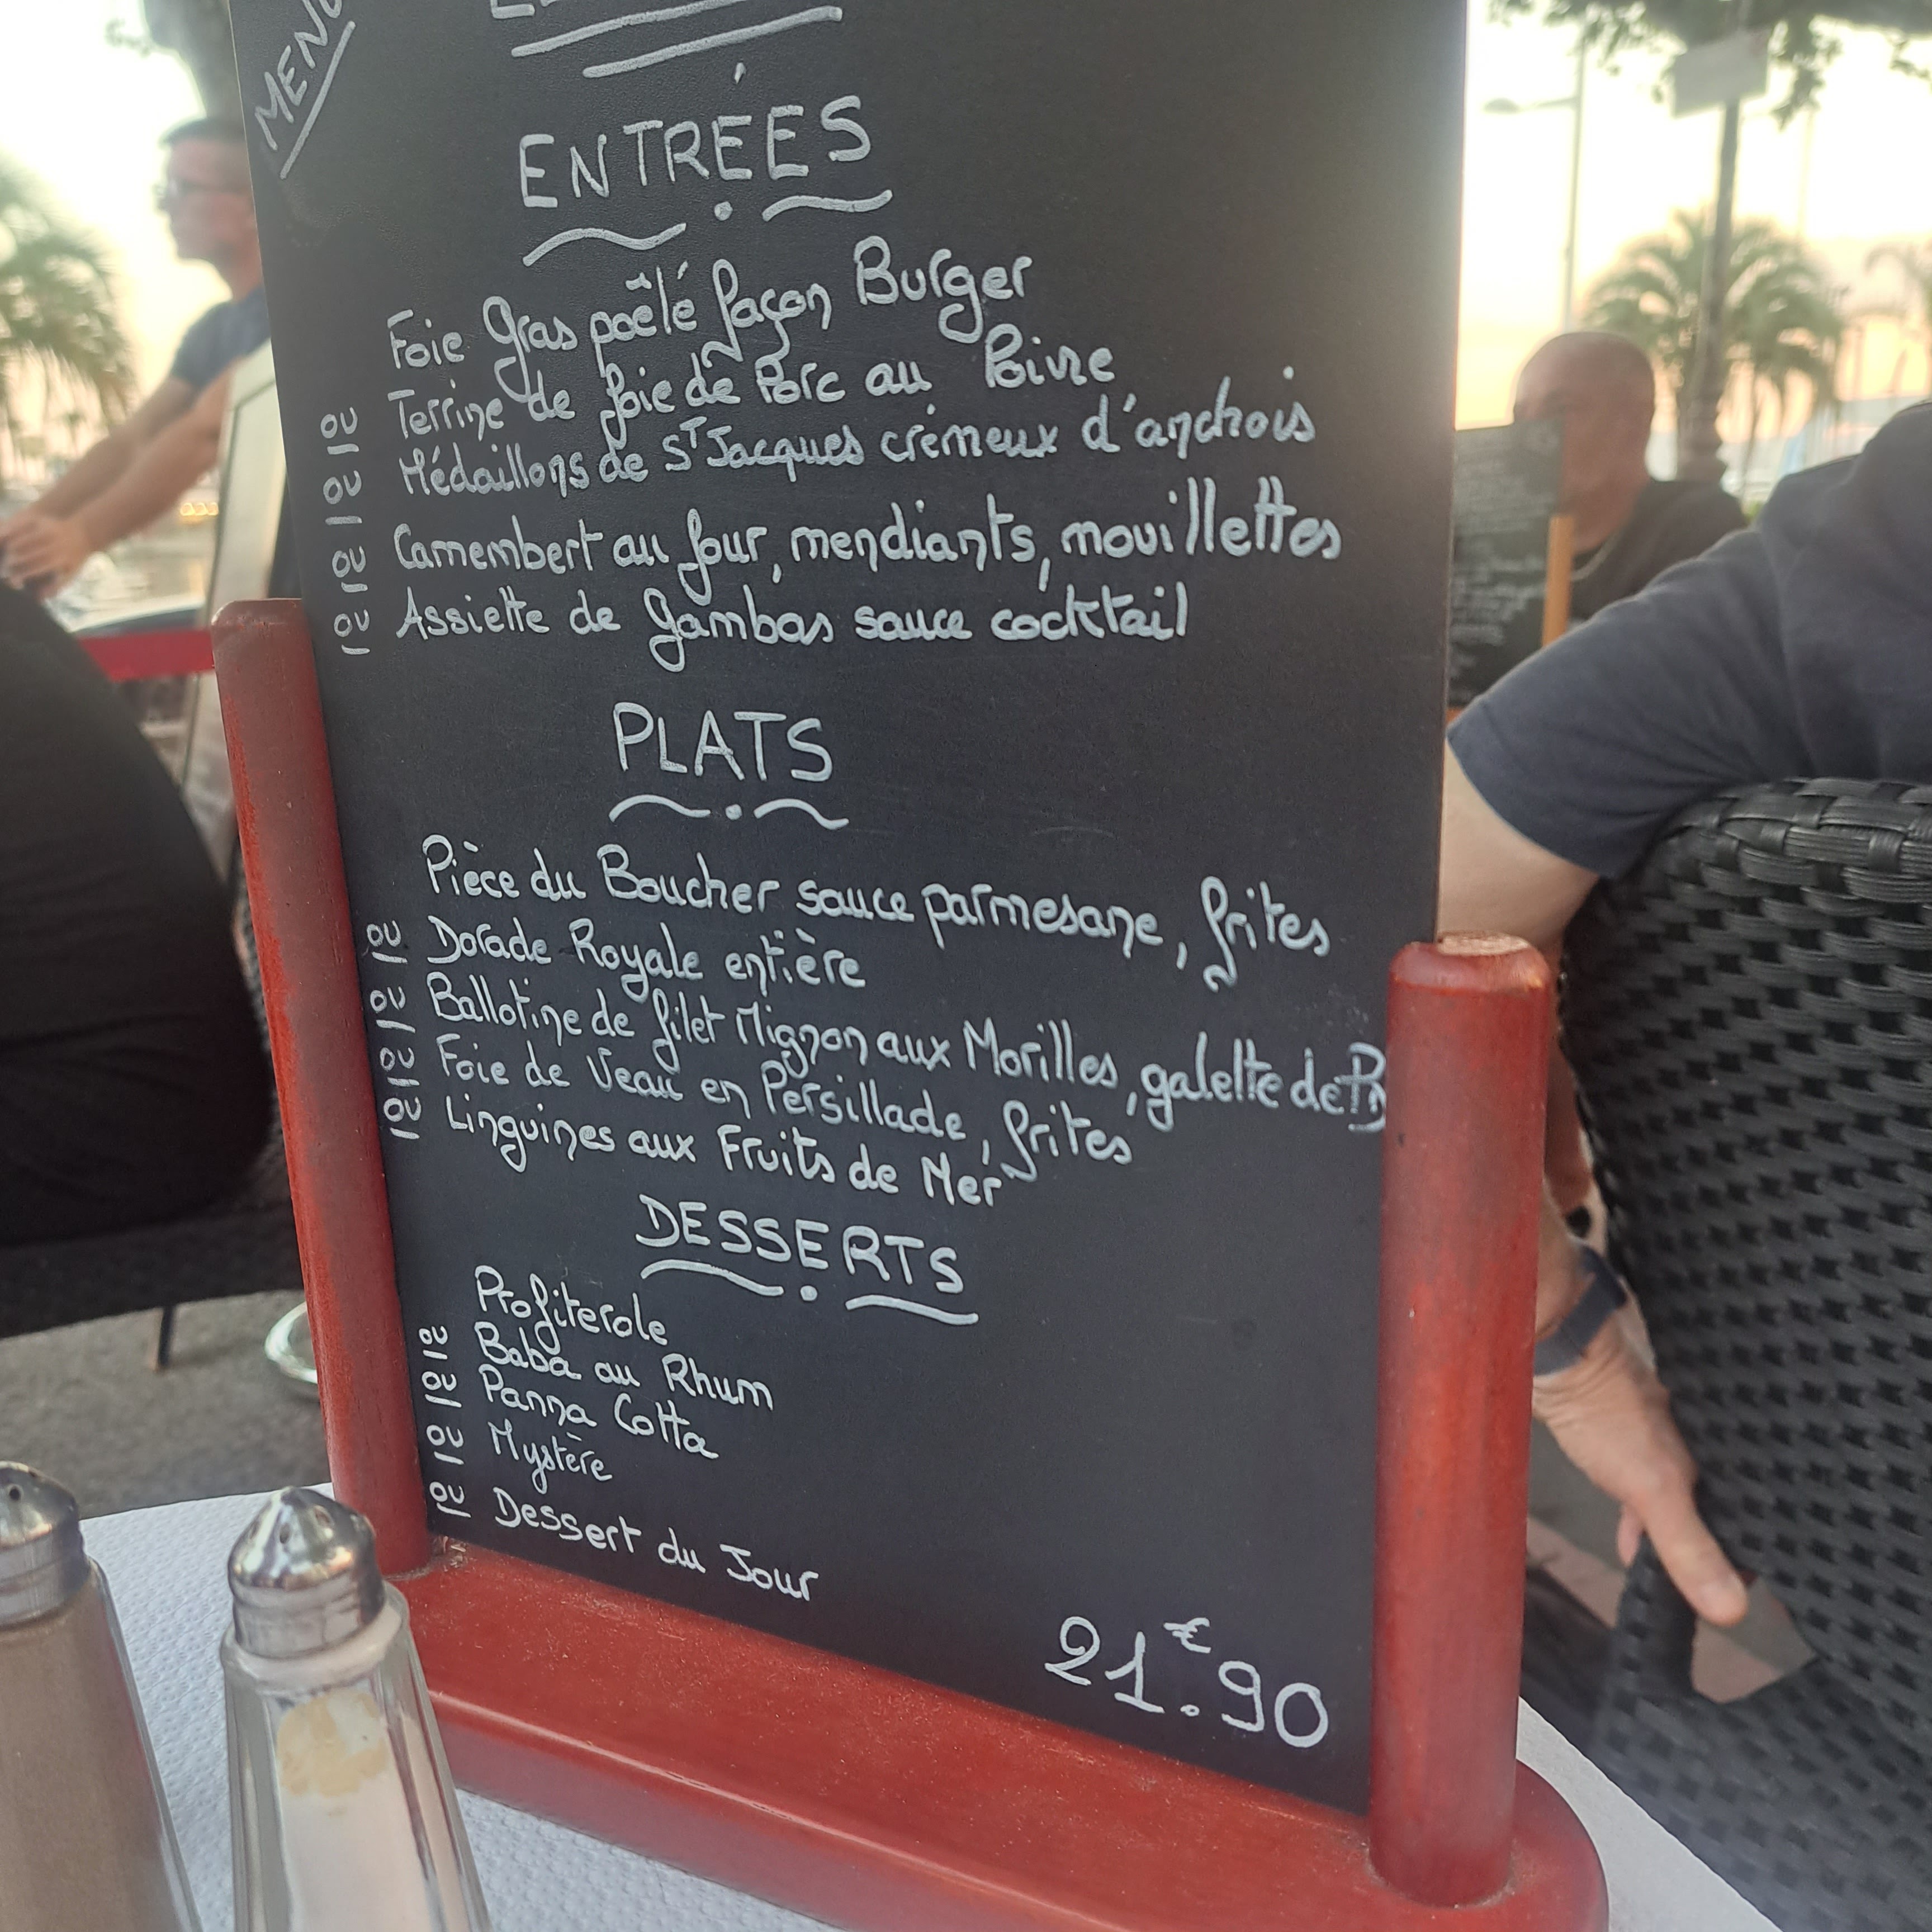 MENU
ENTRÉES
Foie Gras poêlé façon Burger
ou Terrine de foie de Porc au Poivre
ou Médaillons de St Jacques crémeux d'anchois
ou Camembert au four, mendiants, mouillettes
ou Assiette de gambas sauce cocktail
PLATS
Pièce du Boucher sauce parmesane, frites
ou Dorade Royale entière
ou Ballotine de filet Mignon aux Morilles, galette de
ou Foie de Veau en Persillade, frites
ou Linguines aux Fruits de Mer
DESSERTS
Profiterole
ou Baba au Rhum
ou Panna Cotta
ou Mystère
ou Dessert du Jour
21€.90